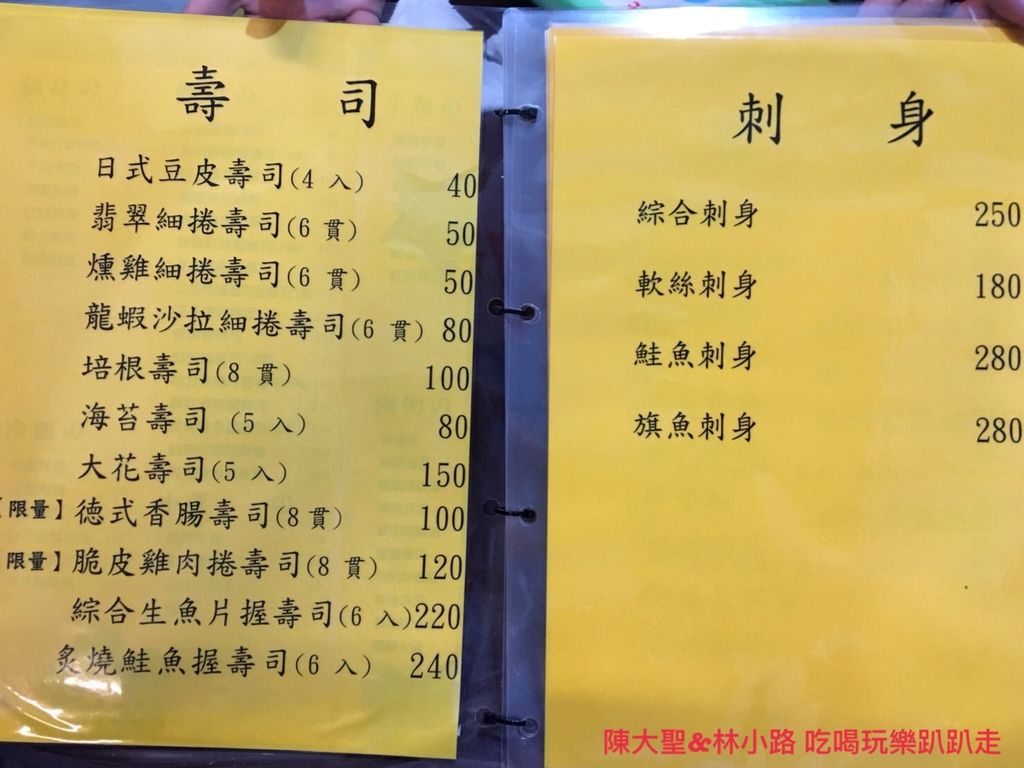 壽司
日式豆皮壽司(4 入) 40
翡翠細捲壽司(6 貫) 50
燻雞細捲壽司(6 貫) 50
龍蝦沙拉細捲壽司(6 貫) 80
培根壽司(8 貫) 100
海苔壽司 (5 入) 80
大花壽司(5 入) 150
【限量】德式香腸壽司(8 貫) 100
【限量】脆皮雞肉捲壽司(8 貫) 120
綜合生魚片握壽司(6 入) 220
炙燒鮭魚握壽司(6 入) 240
刺身
綜合刺身 250
軟絲刺身 180
鮭魚刺身 280
旗魚刺身 280
陳大聖&林小路 吃喝玩樂趴趴走